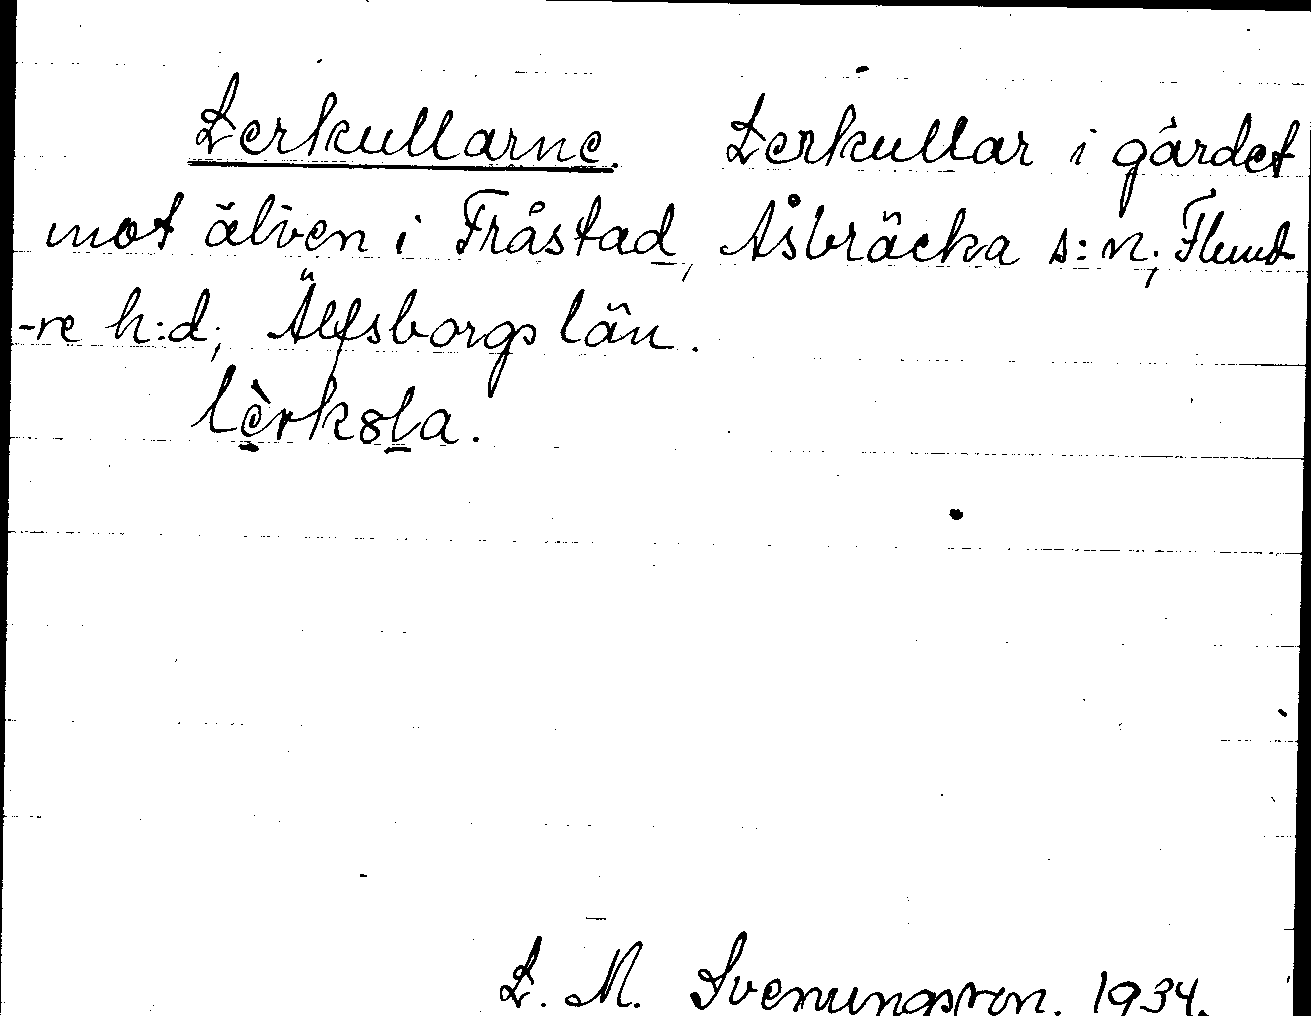 Lerkullarne. Lerkullar i gärdet
mot älven i Fråstad, Åsbräcka s:n; Flund-
-re h:d; Älfsborgs län.
lèrk8la.
L. M. Svenungsson. 1934.